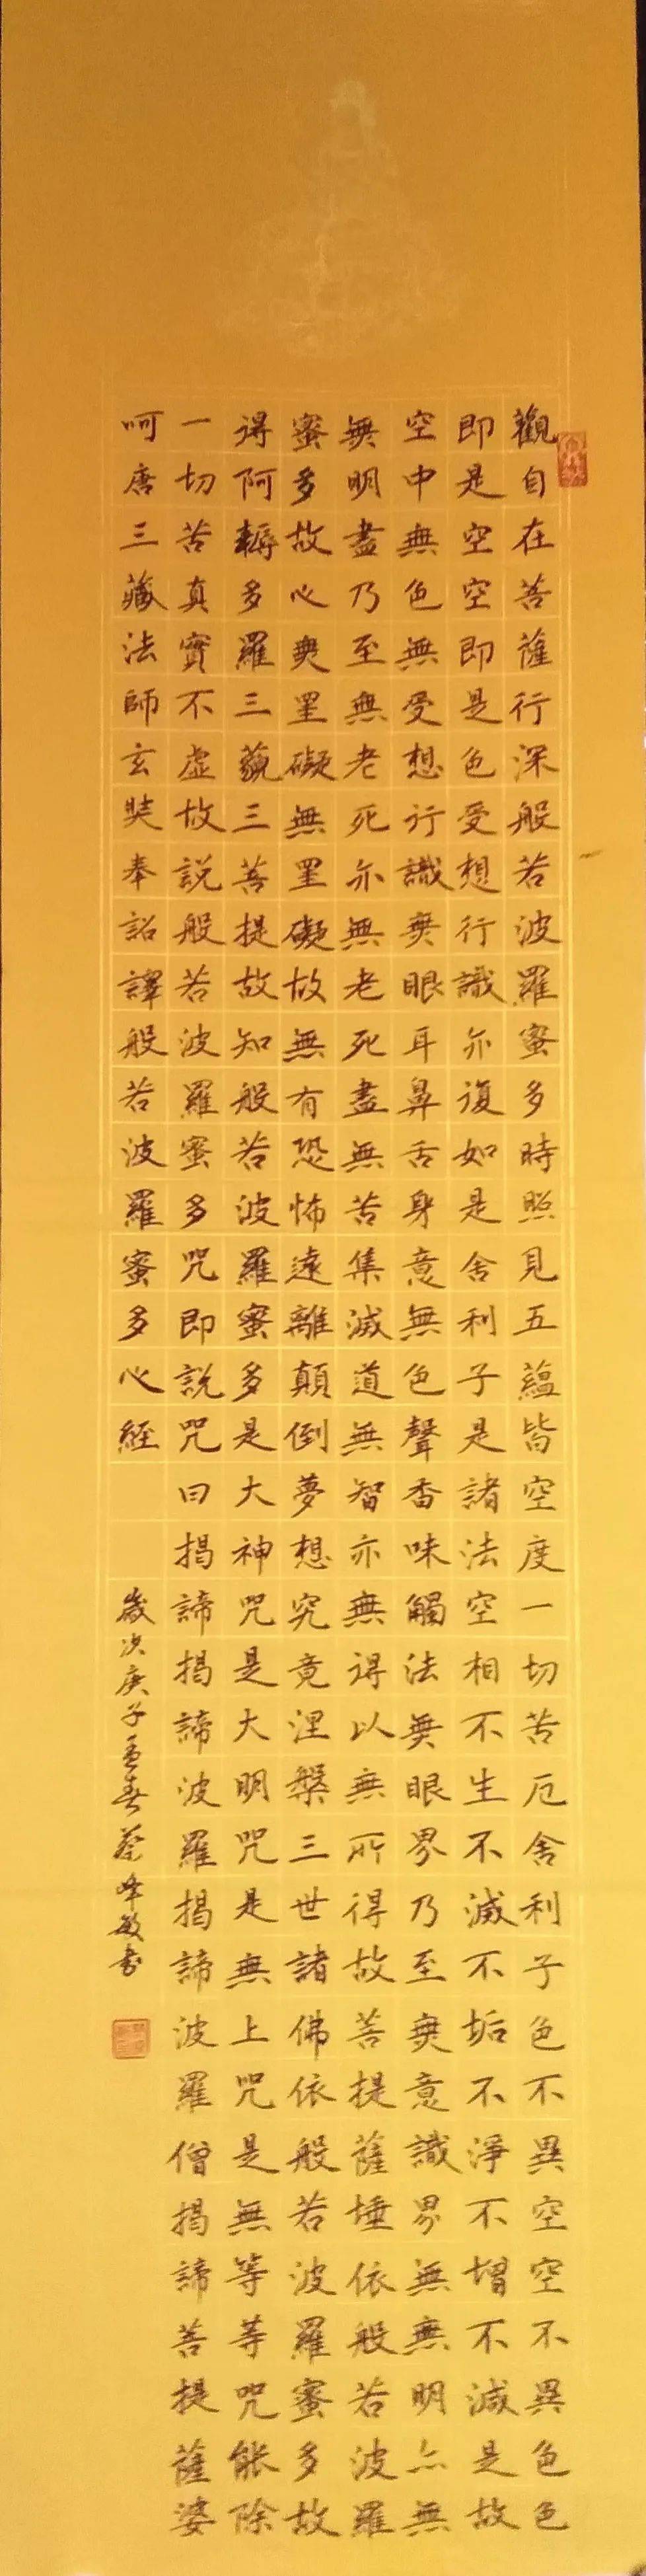 觀自在菩薩行深般若波羅蜜多時照見五蘊皆空度一切苦厄舍利子色不異空空不異色色
即是空空即是色受想行識亦復如是舍利子是諸法空相不生不滅不垢不淨不增不減是故
空中無色無受想行識無眼耳鼻舌身意無色聲香味觸法無眼界乃至無意識界無無明亦無
無明盡乃至無老死亦無老死盡無苦集滅道無智亦無得以無所得故菩提薩埵依般若波羅
蜜多故心無罣礙無罣礙故無有恐怖遠離顛倒夢想究竟涅槃三世諸佛依般若波羅蜜多故
得阿耨多羅三藐三菩提故知般若波羅蜜多是大神咒是大明咒是無上咒是無等等咒能除
一切苦真實不虛故說般若波羅蜜多咒即說咒曰揭諦揭諦波羅揭諦波羅僧揭諦菩提薩婆
呵唐三藏法師玄奘奉詔譯般若波羅蜜多心經
歲次庚子孟春蔡峰敏書